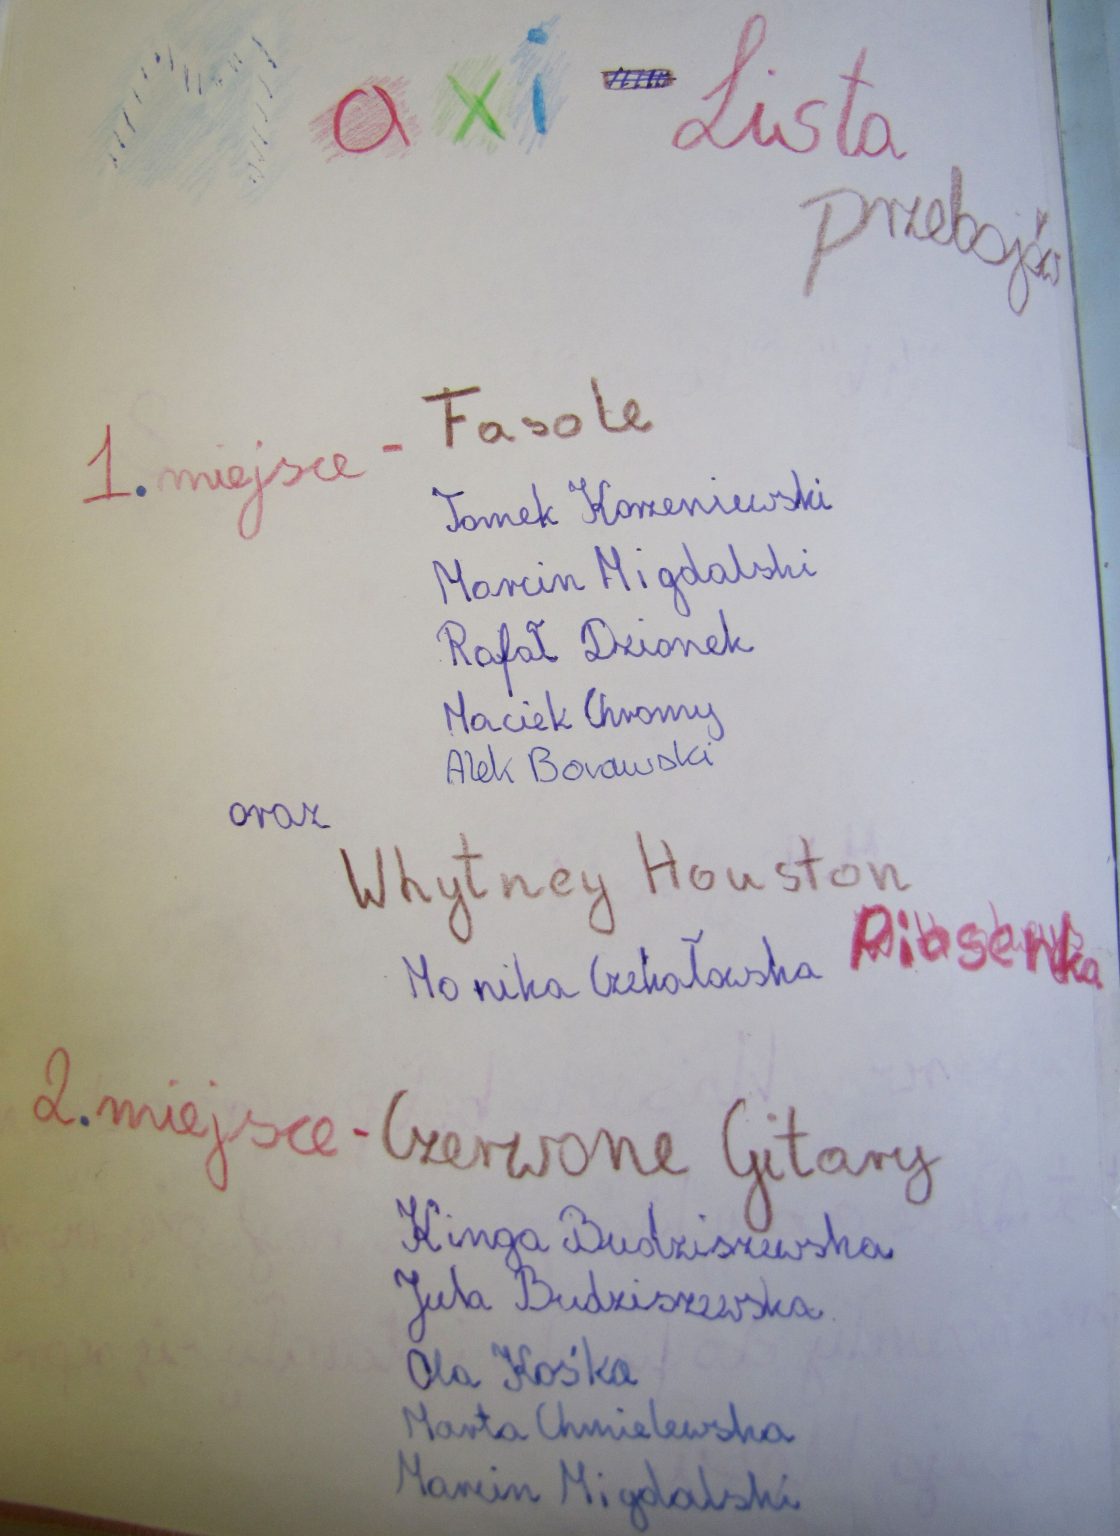 Maxi - Lista
przebojów
1. miejsce - Fasole
Tomek Korzeniewski
Marcin Migdalski
Rafał Dzionek
Maciek Chromy
Alek Borawski
oraz
Whytney Houston
Monika Czekałowska Piosenka
2. miejsce - Czerwone Gitary
Kinga Budziszewska
Jula Budziszewska
Ola Kośka
Marta Chmielewska
Marcin Migdalski